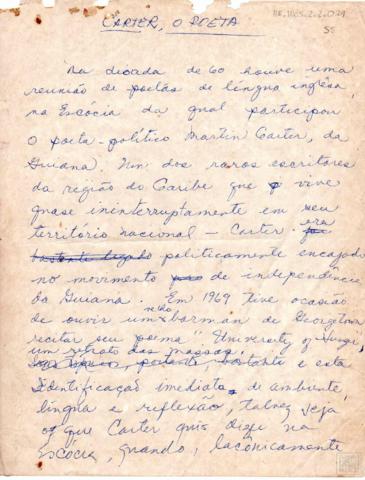 CARTER, O POETA
55
Na década de 60 houve uma
reunião de poetas de língua inglêsa,
na Escócia da qual participou
o poeta-político Martin Carter, da
Guiana. Um dos raros escritores
da região do Caribe que vive
quase ininterruptamente em seu
território nacional - Carter era
bastante ligado politicamente engajado
no movimento de independência
da Guiana. Em 1969 tive ocasião
de ouvir um velho barman de Georgetown
recitar seu poema "University of Hunger,
um retrato das massas,
portanto, bastante e esta
identificação imediata de ambiente,
língua e reflexão, talvez seja
o que Carter quis dizer na
Escócia, quando, lacônicamente